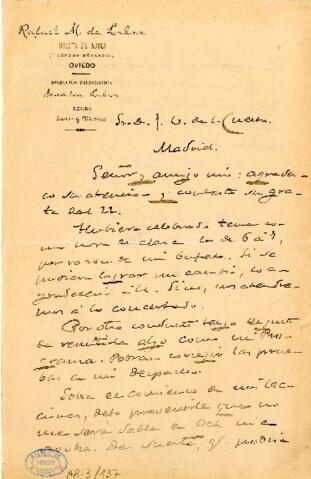 Rafael M. de Labra
OVIEDO
DIRECCIÓN TELEGRÁFICA
Labra
Sr. D. J. U. de la Cuesta
Madrid.
Señor y amigo mio: agradez-
co su atencion y contesto su gra-
ta del 22.
Hubiera celebrado tener co-
mo hora de clase la de 6 a 7,
por razon de mi bufete. Si se
pudiera lograr un cambio, lo a-
gradeceria. Sino, nos atendre-
mos á lo concertado.
Por otro conducto tengo el gusto
de remitirle algo como un Pro-
grama. Podran corregir las prue-
bas en mi despacho.
Sobre el comienzo de mis lec-
ciones, debo prevenirle que no
me será dable en Oct. ni e
. De suerte, q. podria
AR-3/137